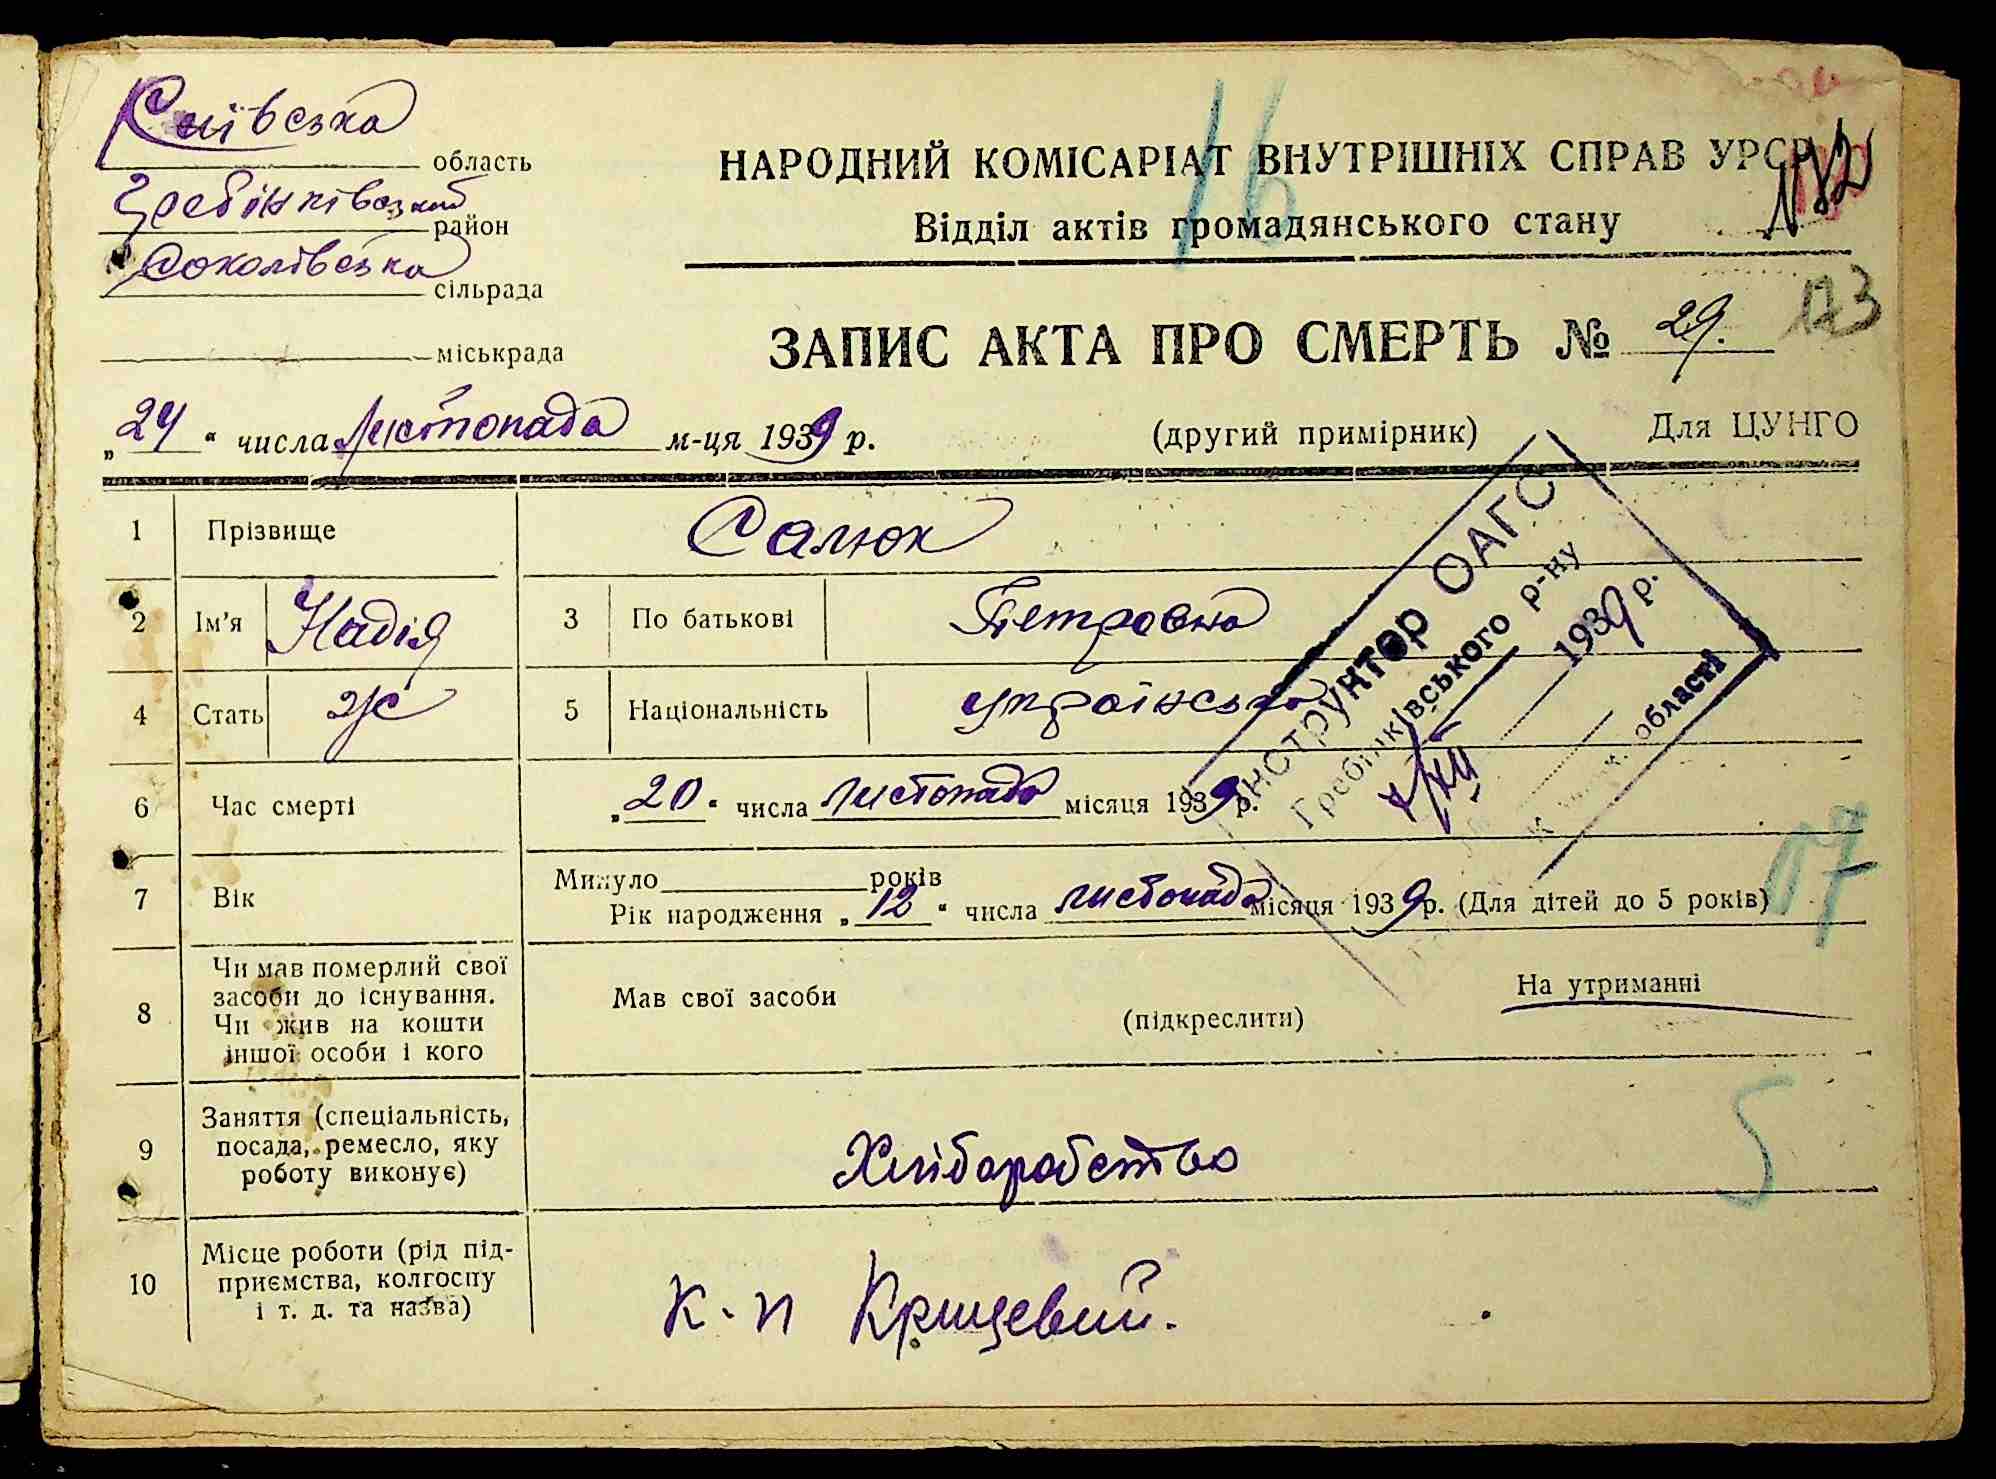 Київська область
Гребінківський район
Соколівська сільрада
міськрада
16
НАРОДНИЙ КОМІСАРІАТ ВНУТРІШНІХ СПРАВ УРСР
Відділ актів громадянського стану
ЗАПИС АКТА ПРО СМЕРТЬ № 29.
173
„24“ числа листопада м-ця 1939 р.
(другий примірник)
Для ЦУНГО
1 Прізвище Салюк
2 Ім'я Надія 3 По батькові Петровна
4 Стать ж 5 Національність українська
6 Час смерті „20“ числа листопада місяця 1939 р.
7 Вік Минуло років
Рік народження „12“ числа листопада місяця 1939 р. (Для дітей до 5 років)
17
8 Чи мав померлий свої
засоби до існування.
Чи жив на кошти
іншої особи і кого
Мав свої засоби
(підкреслити)
На утриманні
9 Заняття (спеціальність,
посада, ремесло, яку
роботу виконує)
Хліборобство
5
10 Місце роботи (рід під-
приємства, колгоспу
і т. д. та назва)
к-п
Інструктор ОАГС
Гребінківського р-ну
7/XII 1939 р.
К області